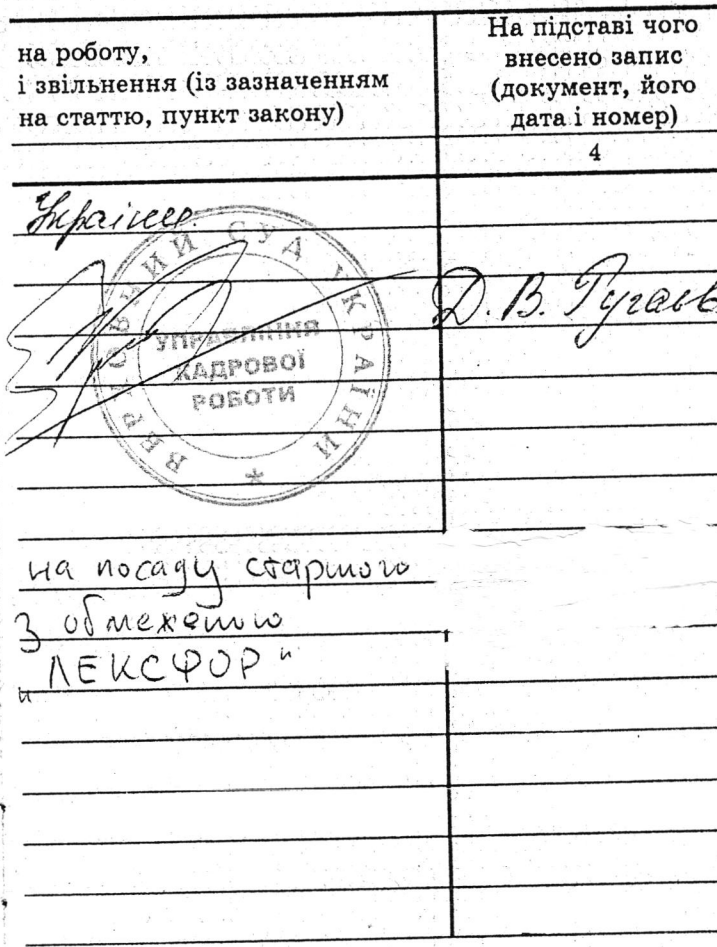 на роботу,
і звільнення (із зазначенням
на статтю, пункт закону)
На підставі чого
внесено запис
(документ, його
дата і номер)
4
України
ВЕРХОВНИЙ СУД УКРАЇНИ
УПРАВЛІННЯ
КАДРОВОЇ
РОБОТИ
*
Д. В.
на посаду старшого
з обмеженою
"ЛЕКСФОР"